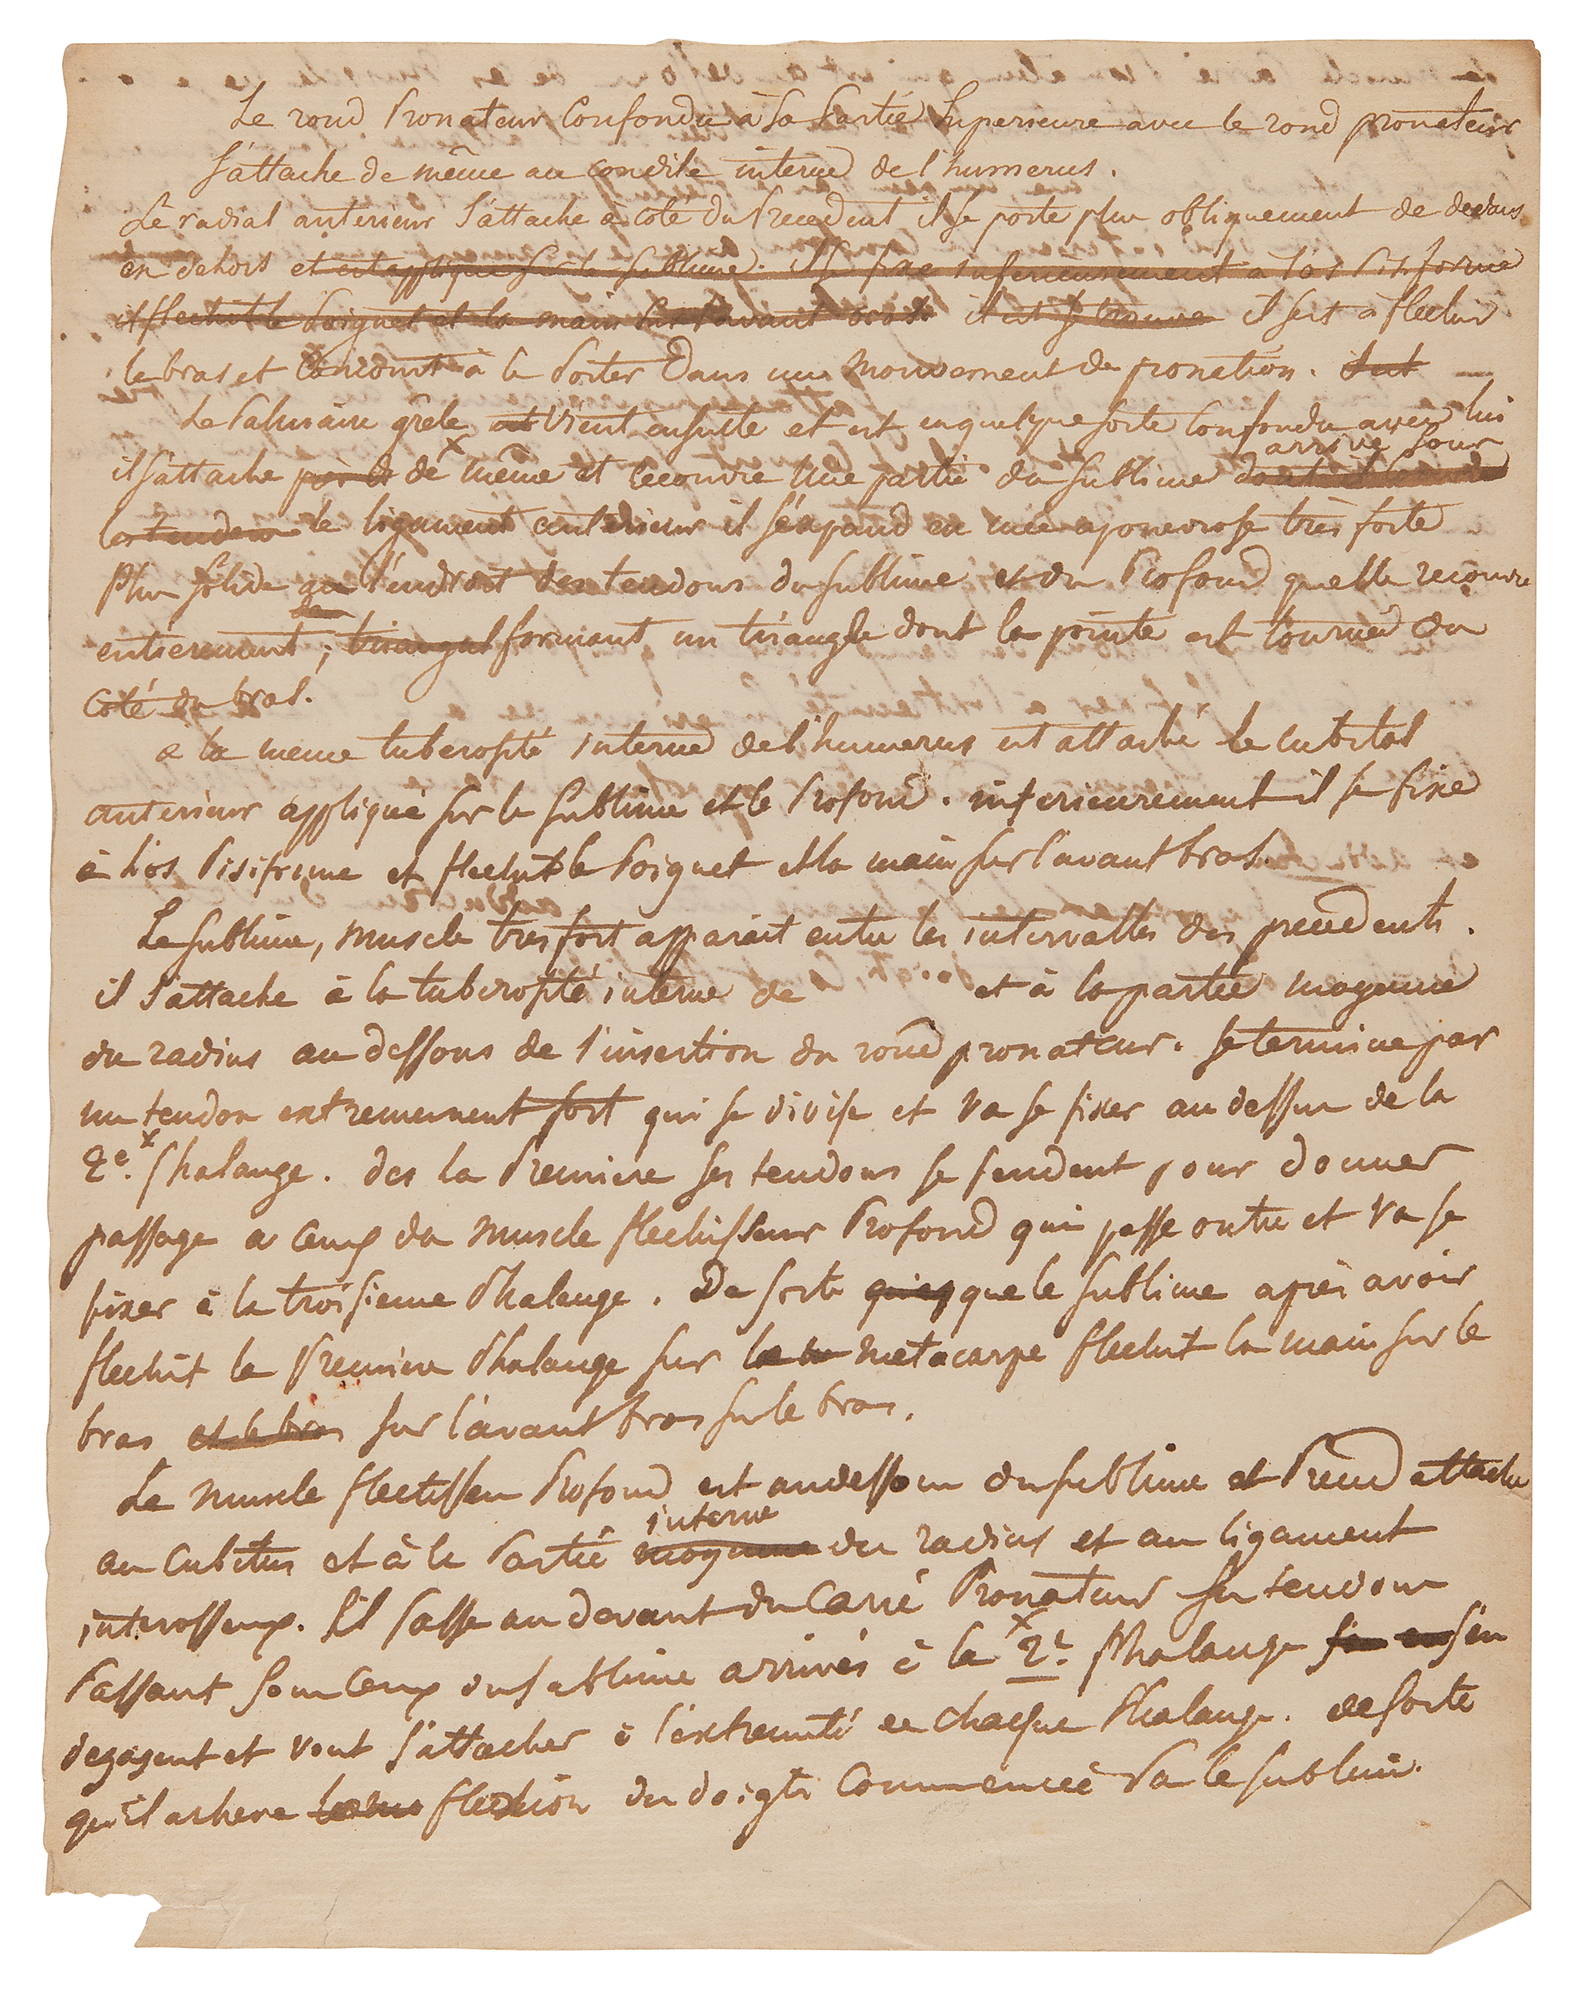 Le rond Pronateur Confondu à Sa Partie Superieure avec le rond pronateur
S'attache de même au condile interne de l'humerus.
Le radial anterieur S'attache a coté du Precedent il se porte plus obliquement de dedans
en dehors et est appliqué sur le sublime. il se fixe inferieurement a l'os Pisiforme
et flechit le Poignet et la main sur l'avant bras il est se trouve il sert a flechir
le bras et Concourt à le Porter Dans un mouvement de pronation.
Le Palmaire grêle est vient ensuite et est en quelque sorte Confondu avec lui
il s'attache par le de même et recouvre Une partie du sublime
arrive sous
les tendons le ligament anterieur il s'épand en une aponevrose très forte
Plus solide qu l'endroit des tendons du sublime et du Profond quelle recouvre
entierement, triangul formant un triangle dont la pointe est tournée du
coté du bras.
a la meme tuberosité interne de l'humerus est attaché le cubital
anterieur appliqué sur le sublime et le Profond. inferieurement il se fixe
à l'os Pisiforme et flechit le Poignet et la main sur l'avant bras.
Le sublime, muscle tres fort apparait entre les intervalles des precedents.
il s'attache à la tuberosité interne de et à la partie moyenne
du radius au dessous de l'insertion du rond pronateur. se termine par
un tendon extremement fort qui se divise et va se fixer au dessus de la
2e. x Phalange. des la Premiere ses tendons se fendent pour donner
passage a ceux du muscle flechisseur Profond qui passe outre et va se
fixer à la troisieme Phalange. De sorte que le sublime après avoir
flechit la Premiere Phalange sur le metacarpe flechit la main sur le
bras et le bras sur l'avant bras sur le bras.
Le muscle flechisseur Profond est au dessous du sublime et Prend attache
interne
au Cubitus et à la Partie moyenne du radius et au ligament
interosseux. Il Passe au devant du Carré Pronateur ses tendons
Passant sous Ceux du sublime arrivés à la x 2e. Phalange s'en
degagent et vont s'attacher à l'extremité de chaque Phalange. de sorte
qu'il acheve flexion du doigts Commencée Par le sublime.